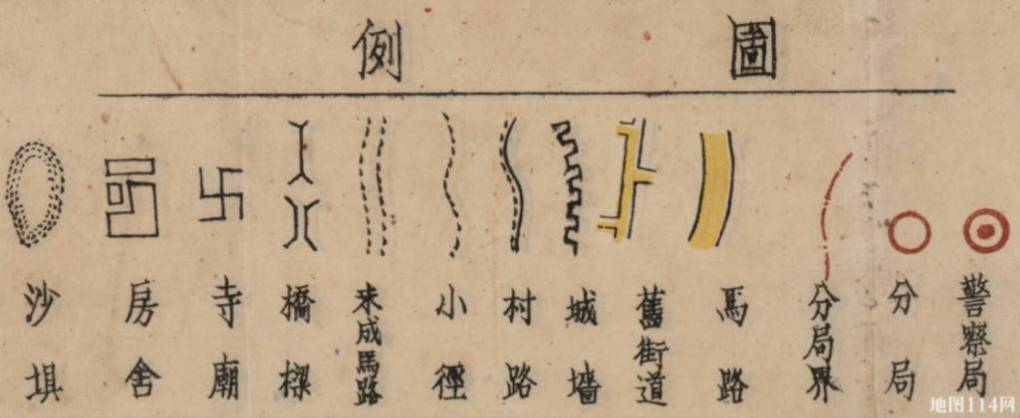 圖例
警察局
分局
分局界
馬路
舊街道
城墙
村路
小徑
未成馬路
橋樑
寺廟
房舍
沙垻
地图114网